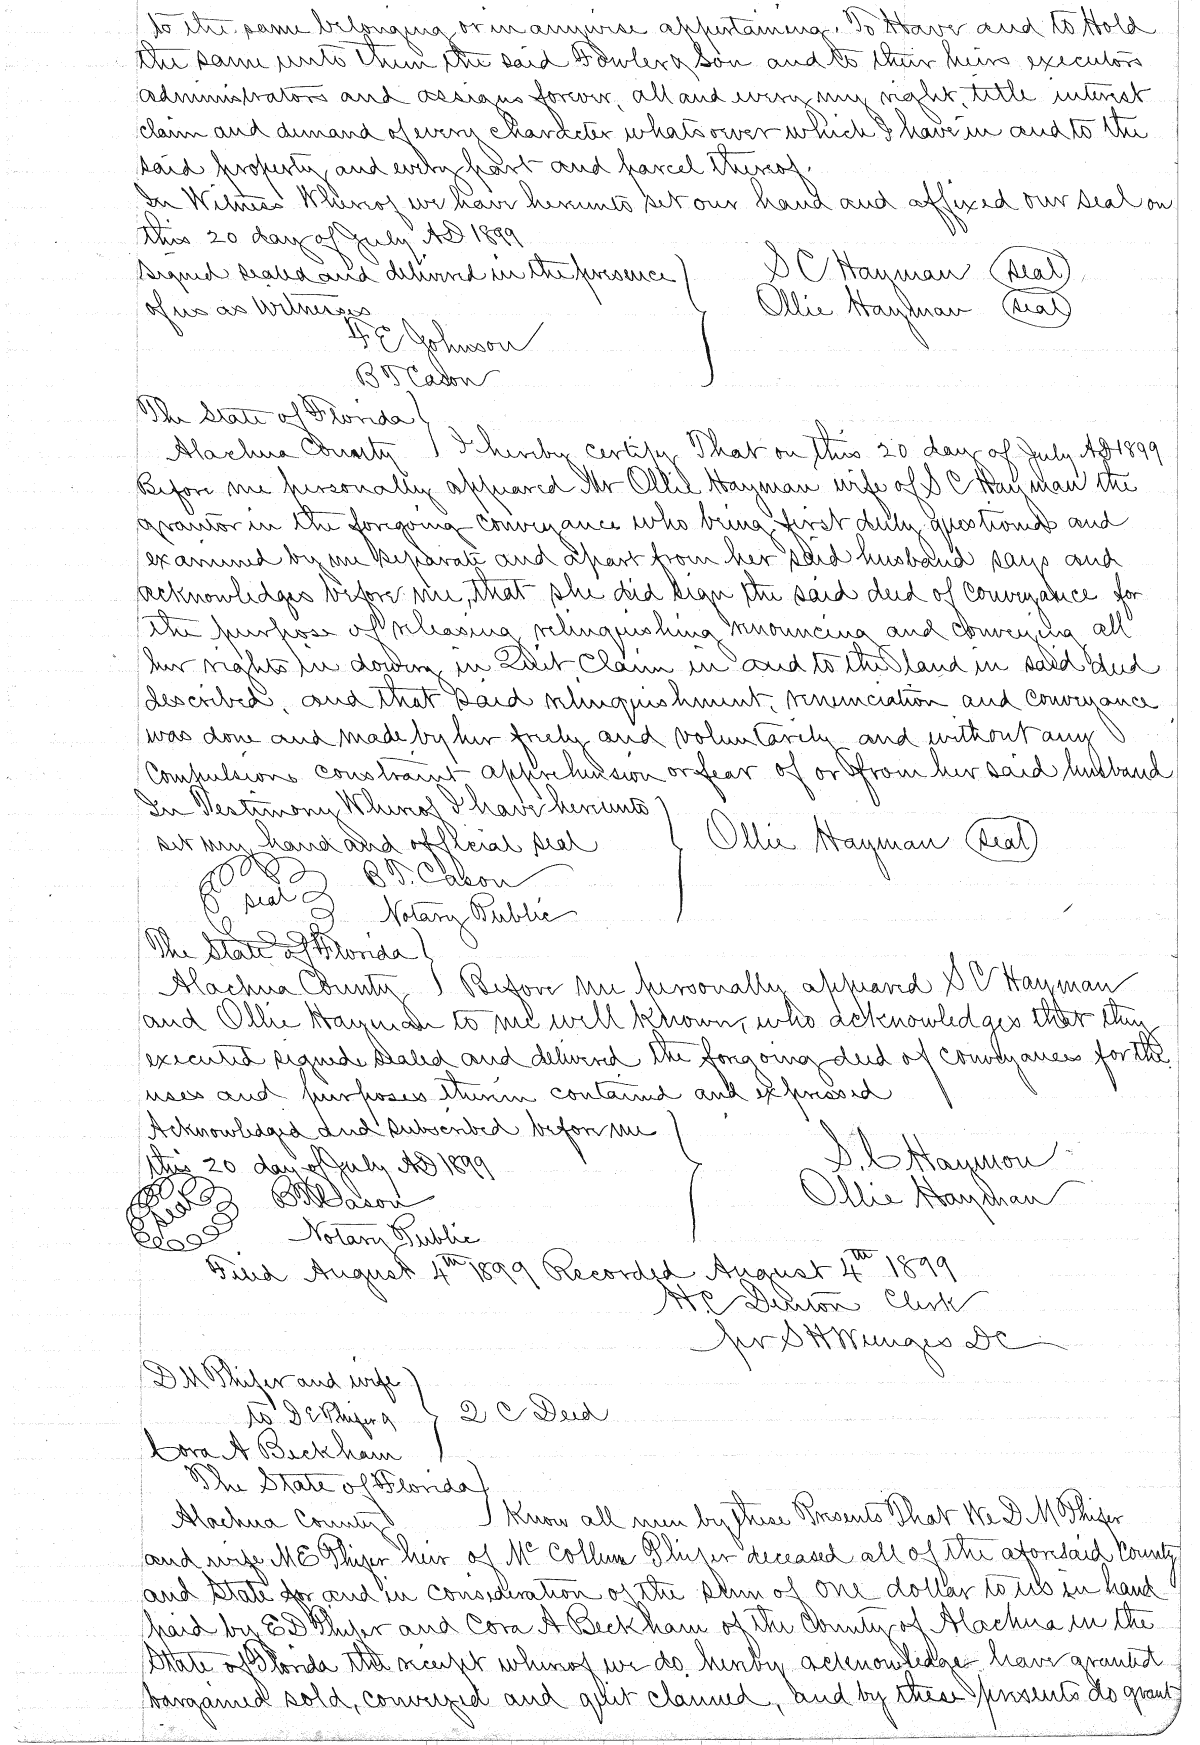 to the same belonging or in anywise appertaining. To Have and to Hold
the same unto them the said Fowler & Son and to their heirs executors
administrators and assigns forever, all and every my right, title interest
claim and demand of every character whatsoever which I have in and to the
said property and every part and parcel thereof.
In Witness Whereof we have hereunto set our hand and affixed our seal on
this 20 day of July AD 1899
Signed sealed and delivered in the presence
of us as Witnesses
S C Hayman (seal)
Ollie Hayman (seal)
F E Johnson
B T Cason
The State of Florida
Alachua County I hereby certify That on this 20 day of July AD 1899
Before me personally appeared Mr Ollie Hayman wife of S C Hayman the
grantor in the forgoing conveyance who being first duly questioned and
examined by me separate and apart from her said husband says and
acknowledges before me, that she did sign the said deed of conveyance for
the purpose of releasing relinquishing renouncing and conveying all
her rights in dowry in Quit Claim in and to the land in said deed
described, and that said relinquishment, renunciation and conveyance
was done and made by her freely and voluntarily and without any
Compulsions constraint apprehension or fear of or from her said husband
In Testimony Whereof I have hereunto
set my hand and official seal
Ollie Hayman (seal)
seal B. T. Cason
Notary Public
The State of Florida
Alachua County Before me personally appeared S C Hayman
and Ollie Hayman to me well known, who acknowledges that they
executed signed sealed and delivered the forgoing deed of conveyances for the
uses and purposes therein contained and expressed
Acknowledged and subscribed before me
this 20 day of July AD 1899
S. C Haymon
Ollie Hayman
seal B T Cason
Notary Public
Filed August 4th 1899 Recorded August 4th 1899
H C Denton Clerk
per S H Wienges DC
D M Phifer and wife
to D E Phifer & Q C Deed
Cora A Beckham
The State of Florida
Alachua County Know all men by these Presents That We D M Phifer
and wife M E Phifer heir of Mc Collum Phifer deceased all of the aforsaid County
and State for and in consideration of the sum of one dollar to us in hand
paid by E D Phifer and Cora A Beckham of the County of Alachua in the
State of Florida the receipt whereof we do hereby acknowledge have granted
bargained sold, conveyed and quit claimed, and by these presents do grant